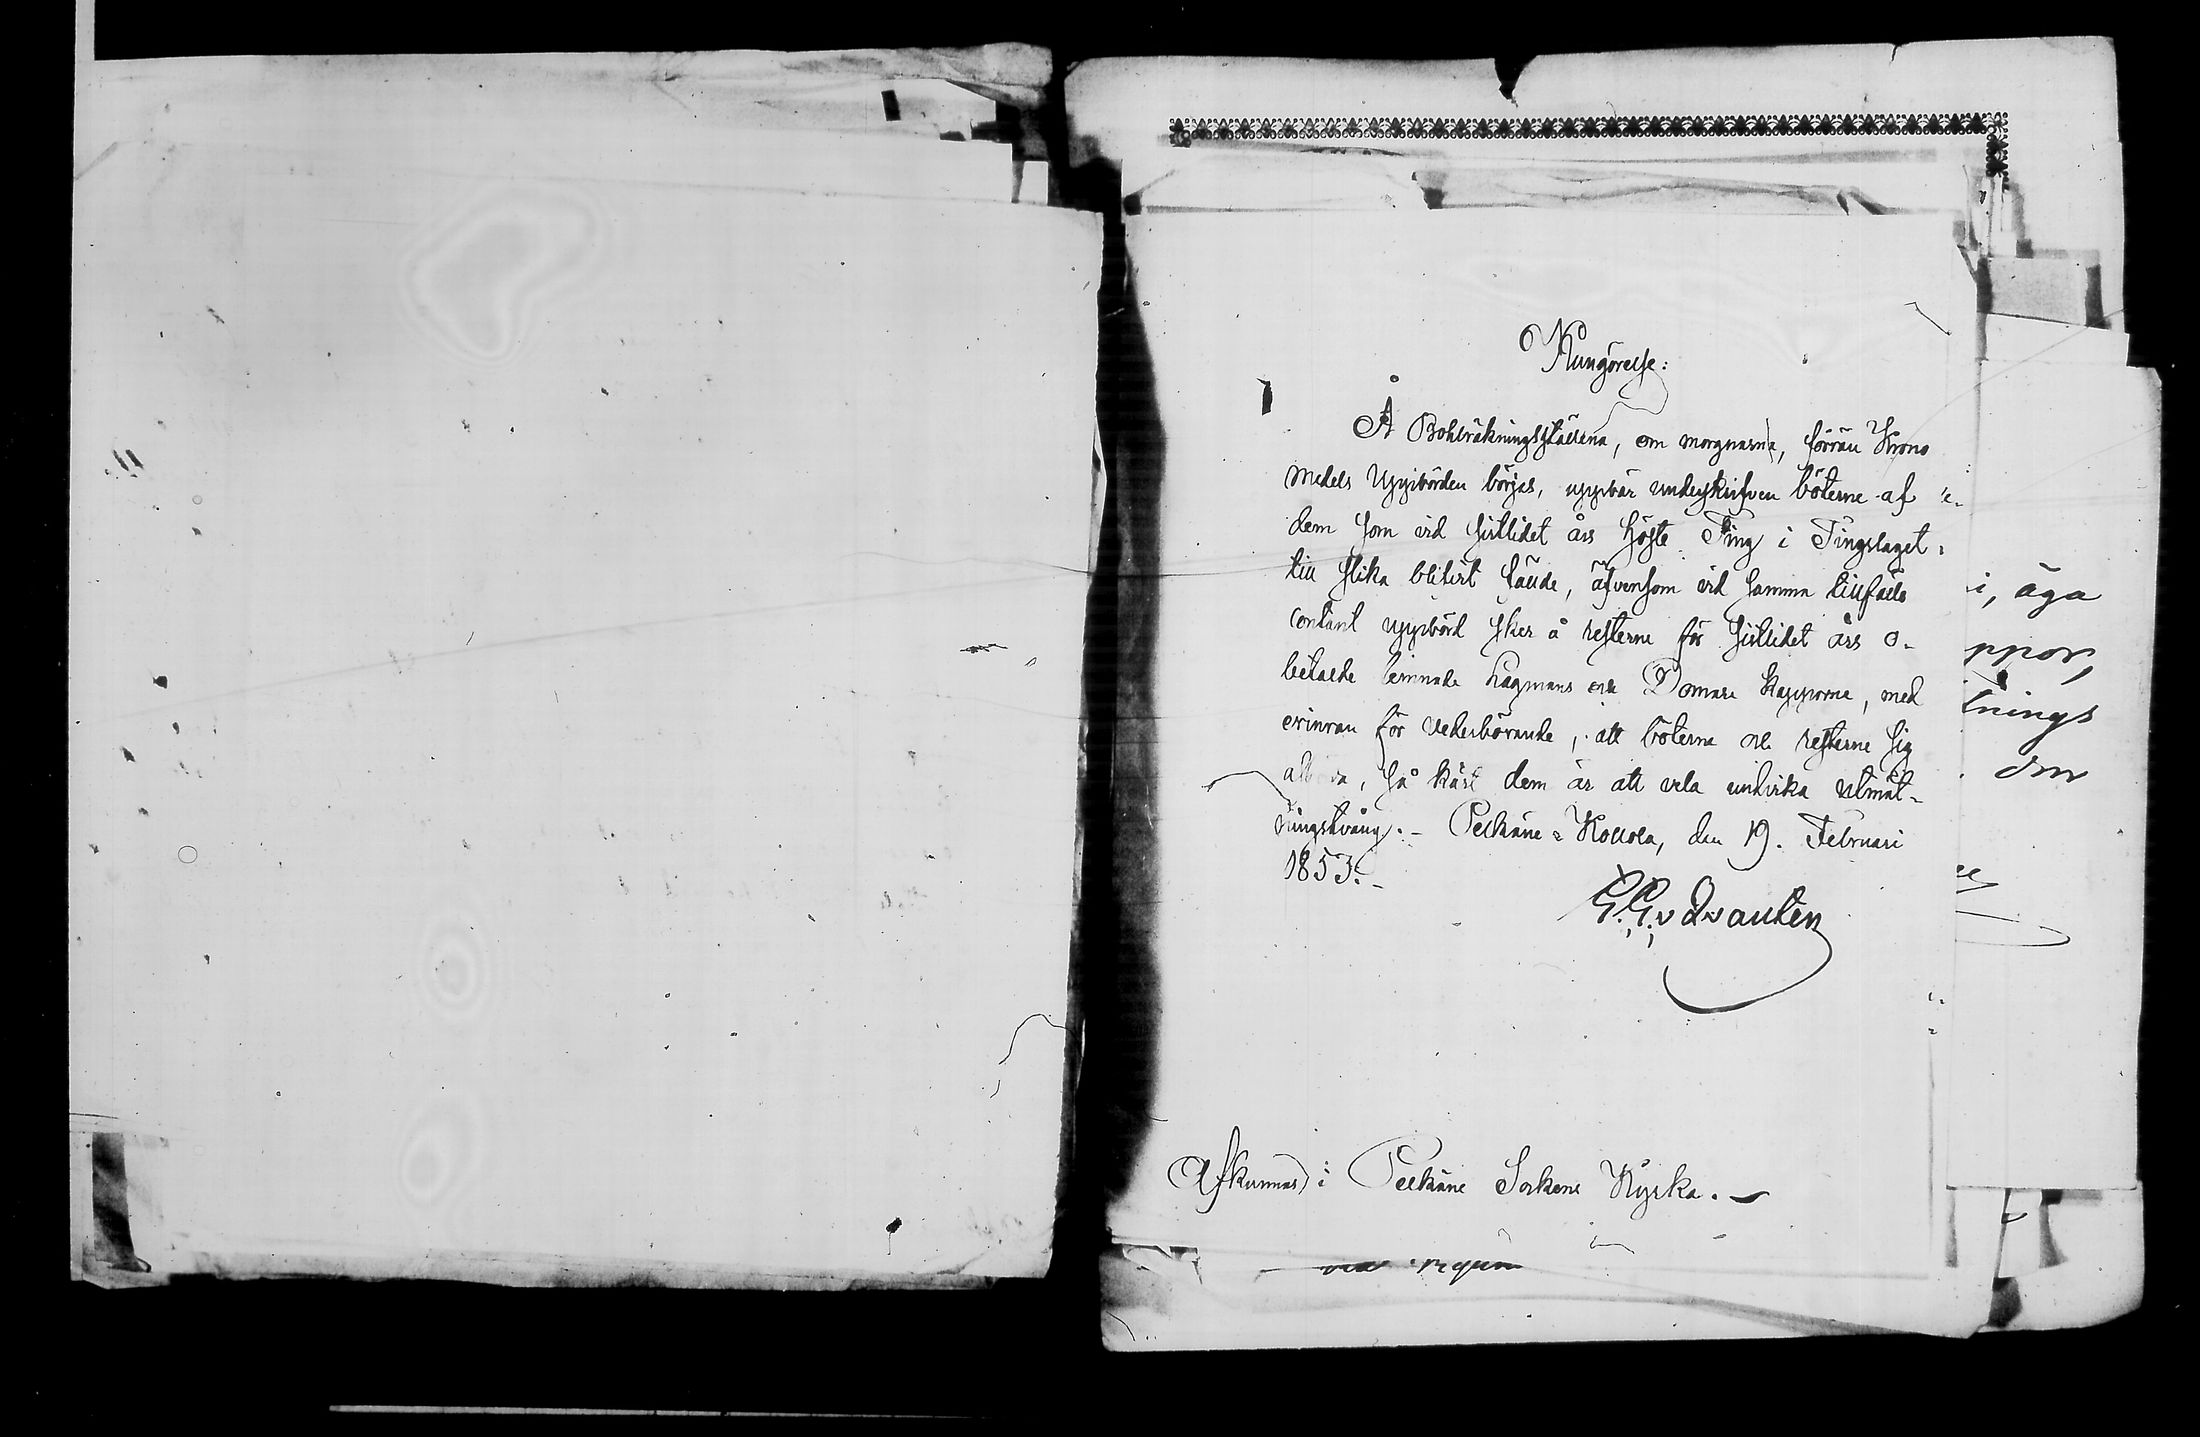 Kungörelse:
Å Bohlräkningsställena, om morgnarna, förrän Krono
medels Uppbörden börjas, uppbär underskrifven böterne af
dem som vid sistlidet års Höste Ting i Tingslaget
till slika blifvit fällde, äfvensom vid samma tillfälle
contant uppbörd sker å resterne för sistlidet års o-
betalde lemnade Lagmans och Domare kapporne, med
erinran för vederbörande, att böterna och resterne sig
så kärt dem är att vela undvika utmät-
ningstvång. - Pelkäne Kollola, den 19. Februari
1853. -
G. G. v Qvanten
Afkunnas i Pelkäne Sockens Kyrka. -
i, äga
ppor,
tnings
om